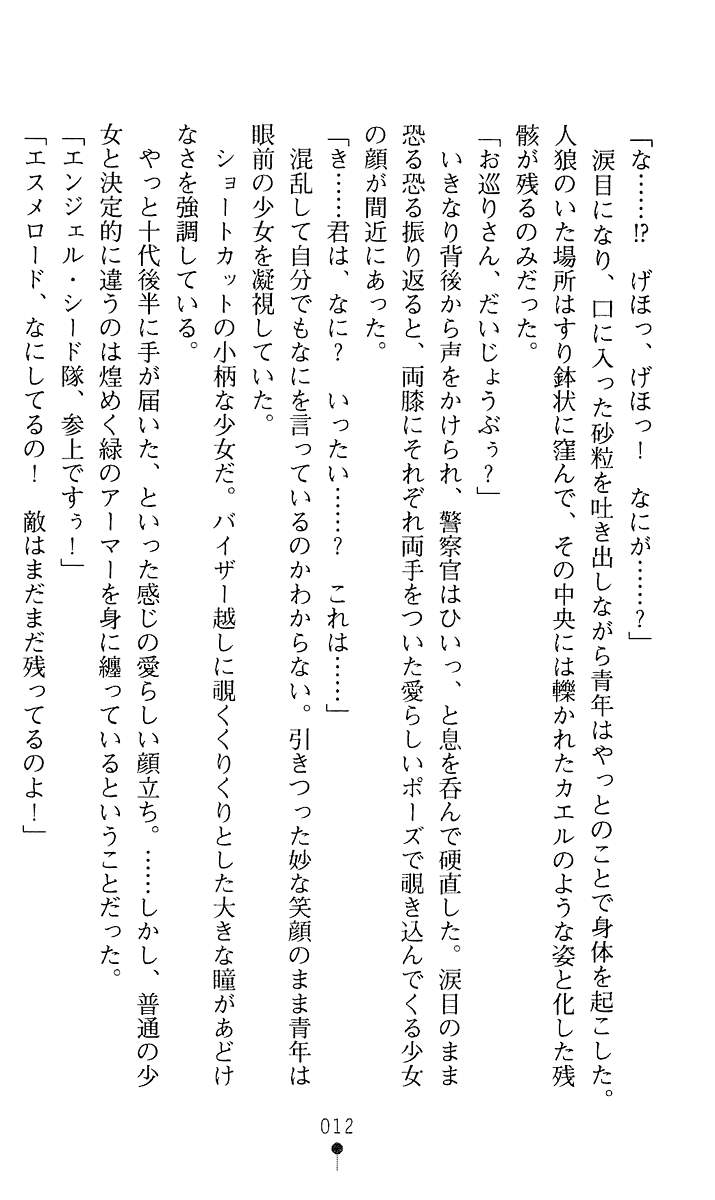 「な……!?　げほっ、げほっ！　なにが……？」
　涙目になり、口に入った砂粒を吐き出しながら青年はやっとのことで身体を起こした。
人狼のいた場所はすり鉢状に窪んで、その中央には轢かれたカエルのような姿と化した残
骸が残るのみだった。
「お巡りさん、だいじょうぶぅ？」
　いきなり背後から声をかけられ、警察官はひいっ、と息を呑んで硬直した。涙目のまま
恐る恐る振り返ると、両膝にそれぞれ両手をついた愛らしいポーズで覗き込んでくる少女
の顔が間近にあった。
「き……君は、なに？　いったい……？　これは……」
　混乱して自分でもなにを言っているのかわからない。引きつった妙な笑顔のまま青年は
眼前の少女を凝視していた。
　ショートカットの小柄な少女だ。バイザー越しに覗くくりくりとした大きな瞳があどけ
なさを強調している。
　やっと十代後半に手が届いた、といった感じの愛らしい顔立ち。……しかし、普通の少
女と決定的に違うのは煌めく緑のアーマーを身に纏っているということだった。
「エンジェル・シード隊、参上ですぅ！」
「エスメロード、なにしてるの！　敵はまだまだ残ってるのよ！」
012